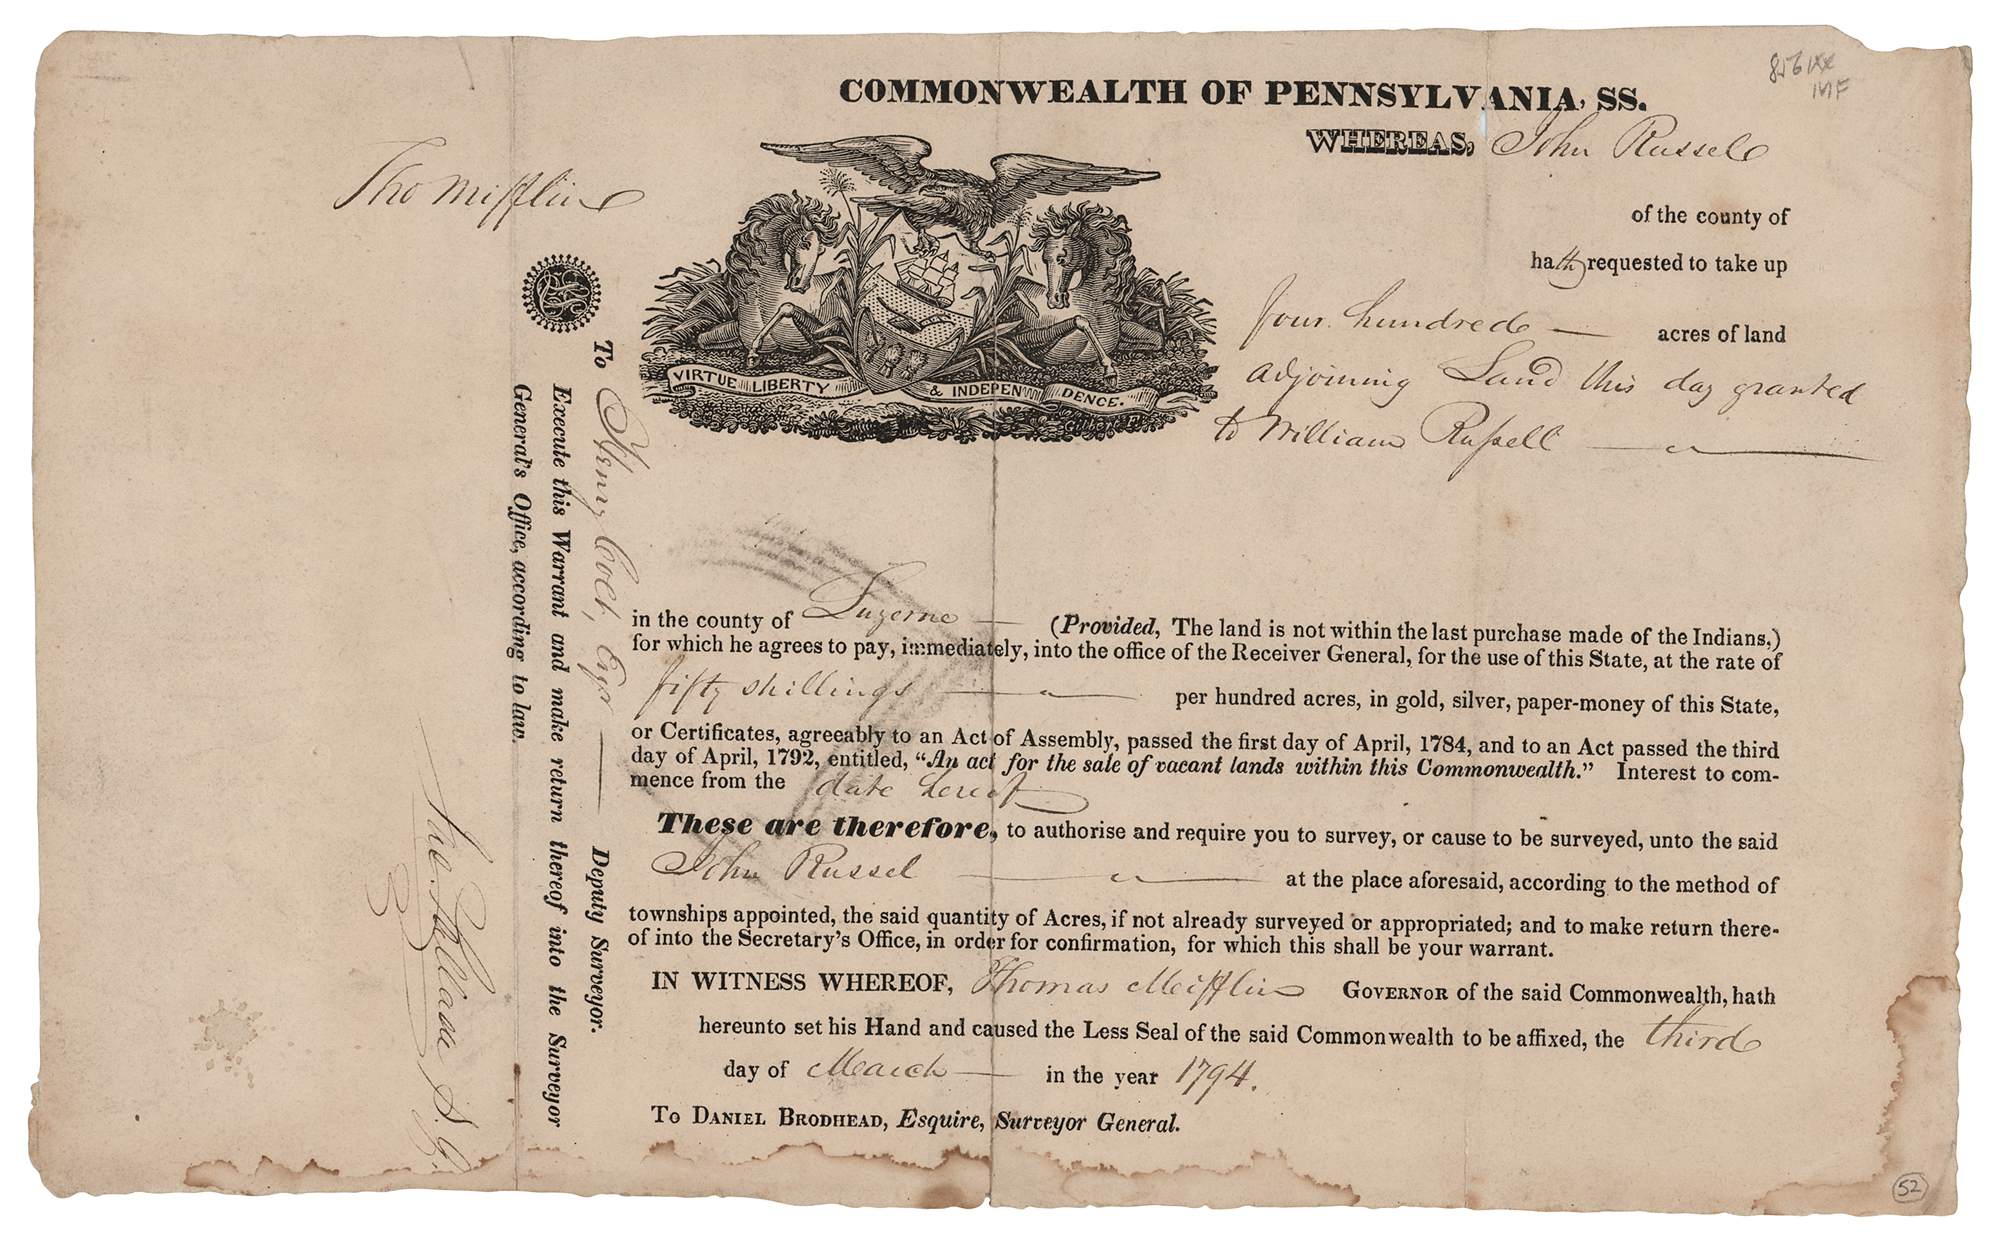 COMMONWEALTH OF PENNSYLVANIA, SS.
WHEREAS, John Russel
of the county of
hath requested to take up
four hundred acres of land
adjoining Land this day granted
to William Russell
VIRTUE LIBERTY & INDEPENDENCE.
in the county of Luzerne (Provided, The land is not within the last purchase made of the Indians,)
for which he agrees to pay, immediately, into the office of the Receiver General, for the use of this State, at the rate of
fifty shillings per hundred acres, in gold, silver, paper-money of this State,
or Certificates, agreeably to an Act of Assembly, passed the first day of April, 1784, and to an Act passed the third
day of April, 1792, entitled, "An act for the sale of vacant lands within this Commonwealth." Interest to com-
mence from the date hereof
These are therefore, to authorise and require you to survey, or cause to be surveyed, unto the said
John Russel at the place aforesaid, according to the method of
townships appointed, the said quantity of Acres, if not already surveyed or appropriated; and to make return there-
of into the Secretary's Office, in order for confirmation, for which this shall be your warrant.
IN WITNESS WHEREOF, Thomas Mifflin GOVERNOR of the said Commonwealth, hath
hereunto set his Hand and caused the Less Seal of the said Commonwealth to be affixed, the third
day of March in the year 1794.
To DANIEL BRODHEAD, Esquire, Surveyor General.
Tho Mifflin
To Henry Deputy Surveyor.
Execute this Warrant and make return thereof into the Surveyor
General's Office, according to law.
S. G.
MF
52